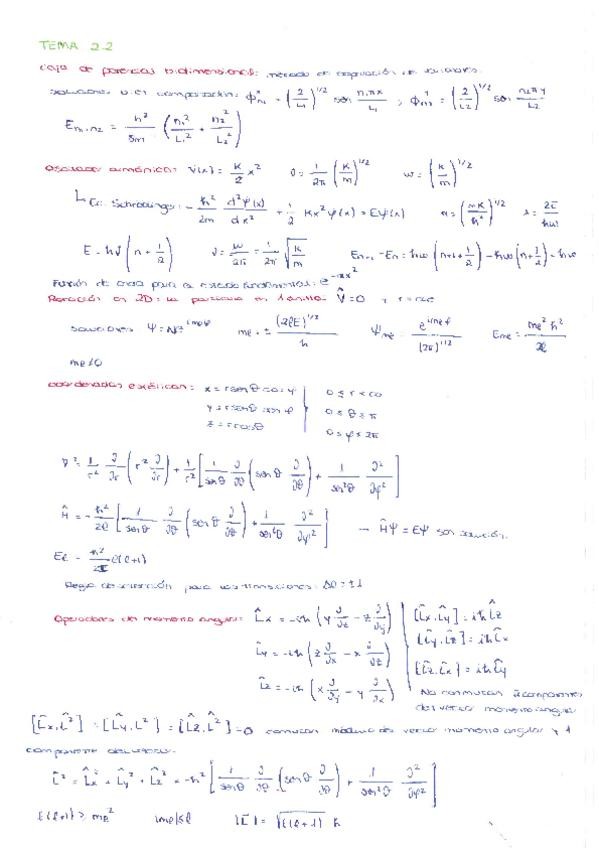 TEMA 2.2
Caja de potencial bidimensional: método de separación de variables.
soluciones por comparación: ϕ*n1 = (2/L1)^1/2 sen n1πx/L1 ; ϕ*n2 = (2/L2)^1/2 sen n2πy/L2
En1,n2 = h²/8m (n1²/L1² + n2²/L2²)
Oscilador armónico: V(x) = K/2 x² ν = 1/2π (K/m)^1/2 ω = (K/m)^1/2
↳ Ec. Schrödinger: -ħ²/2m d²ψ(x)/dx² + 1/2 Kx²ψ(x) = Eψ(x) α = (mK/ħ²)^1/2 λ = 2E/ħω
E = hν (n + 1/2) ν = ω/2π = 1/2π √K/m En+1 - En = ħω (n+1+1/2) - ħω (n+1/2) = ħω
Función de onda para el estado fundamental: e^-αx²
Rotación en 2D: la partícula en 1 anillo. V̂ = 0
soluciones Ψ = N e^imφ me = ± (2IE)^1/2/ħ Ψme = e^imeφ/(2π)^1/2 Eme = me² ħ²/2I
coordenadas esféricas: x = r senθ cosφ 0 ≤ r < ∞
y = r senθ senφ 0 ≤ θ ≤ π
z = r cosθ 0 ≤ φ ≤ 2π
∇² = 1/r² ∂/∂r (r² ∂/∂r) + 1/r² [1/senθ ∂/∂θ (senθ ∂/∂θ) + 1/sen²θ ∂²/∂φ²]
Ĥ = -ħ²/2I [1/senθ ∂/∂θ (senθ ∂/∂θ) + 1/sen²θ ∂²/∂φ²] → ĤΨ = EΨ son solución.
El = ħ²/2I l(l+1)
Regla de selección para las transiciones: Δl = ±1
Operadores del momento angular: L̂x = -iħ (y ∂/∂z - z ∂/∂y) [L̂x, L̂y] = iħ L̂z
L̂y = -iħ (z ∂/∂x - x ∂/∂z) [L̂y, L̂z] = iħ L̂x
L̂z = -iħ (x ∂/∂y - y ∂/∂x) [L̂z, L̂x] = iħ L̂y
No conmutan 2 componentes del vector momento angular
[L̂x, L̂²] = [L̂y, L̂²] = [L̂z, L̂²] = 0 conmutan módulo del vector momento angular y 1
componente del vector.
L̂² = L̂x² + L̂y² + L̂z² = -ħ² [1/senθ ∂/∂θ (senθ ∂/∂θ) + 1/sen²θ ∂²/∂φ²]
l(l+1) ≥ me² |me| ≤ l |L̄| = √l(l+1) ħ